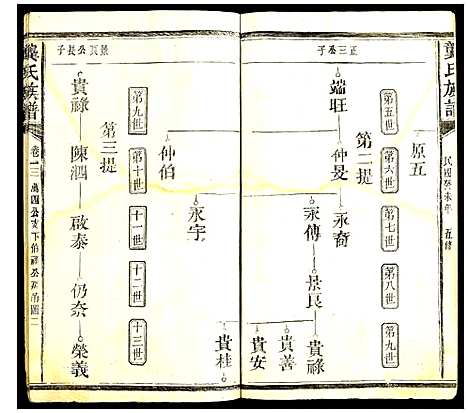 龔氏族譜
民國癸未年 五修
正三公子
原五
第五世
第六世
第七世
第八世
第九世
第二提
端旺
仲旻
永裔
永傳
景良
貴祿
貴善
貴安
貴桂
永宇
仲伯
景良公長子
第九世
第十世
十一世
十二世
十三世
第三提
貴祿
陳泗
啟泰
仍奈
榮義
龔氏族譜
卷一三